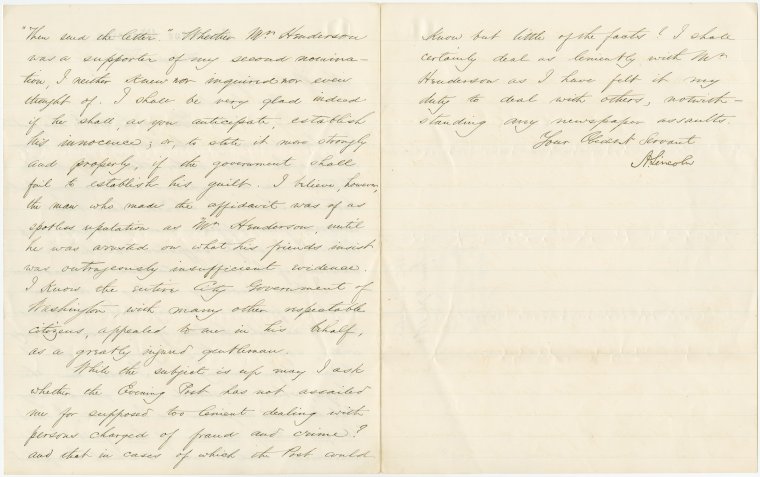 "Then send the letter." Whether Mr. Henderson
was a supporter of my second nomina-
tion, I neither knew nor inquired nor even
thought of. I shall be very glad indeed
if he shall, as you anticipate, establish
his innocence; or, to state it more strongly
and properly, if the government shall
fail to establish his guilt. I believe, however,
the man who made the affidavit was of as
spotless reputation as Mr. Henderson, until
he was arrested on what his friends insist
was outrageously insufficient evidence.
I know the entire City Government of
Washington, with many other respectable
citizens, appealed to me in his behalf,
as a greatly injured gentleman.
While the subject is up may I ask
whether the Evening Post has not assailed
me for supposed too lenient dealing with
persons charged of fraud and crime?
and that in cases of which the Post could
know but little of the facts? I shall
certainly deal as leniently with Mr.
Henderson as I have felt it my
duty to deal with others, notwith-
standing any newspaper assaults.
Your Obedient Servant
A Lincoln